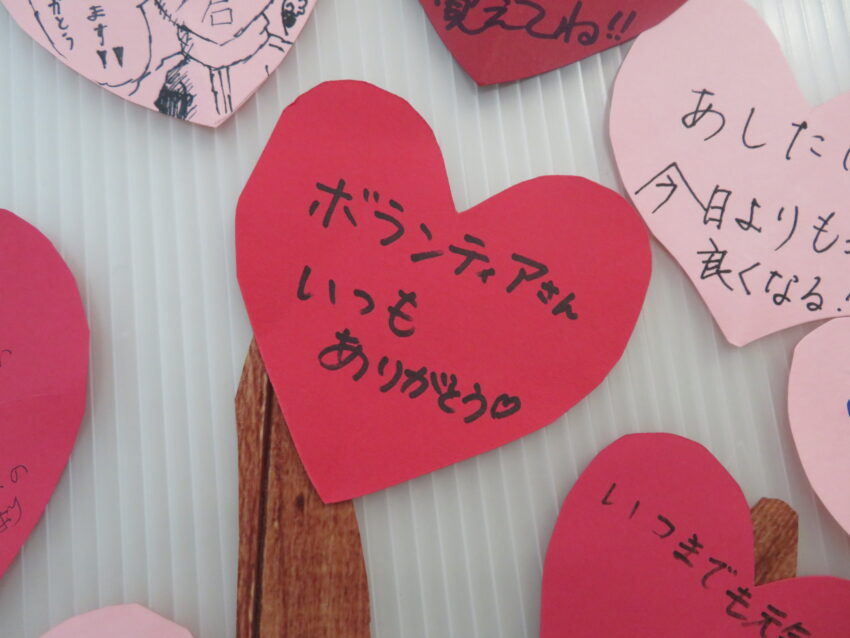 ます!!
ありがとう
覚えてね!!
あした
今日よりも
良くなる!
ボランティアさん
いつも
ありがとう♡
いつまでも元気